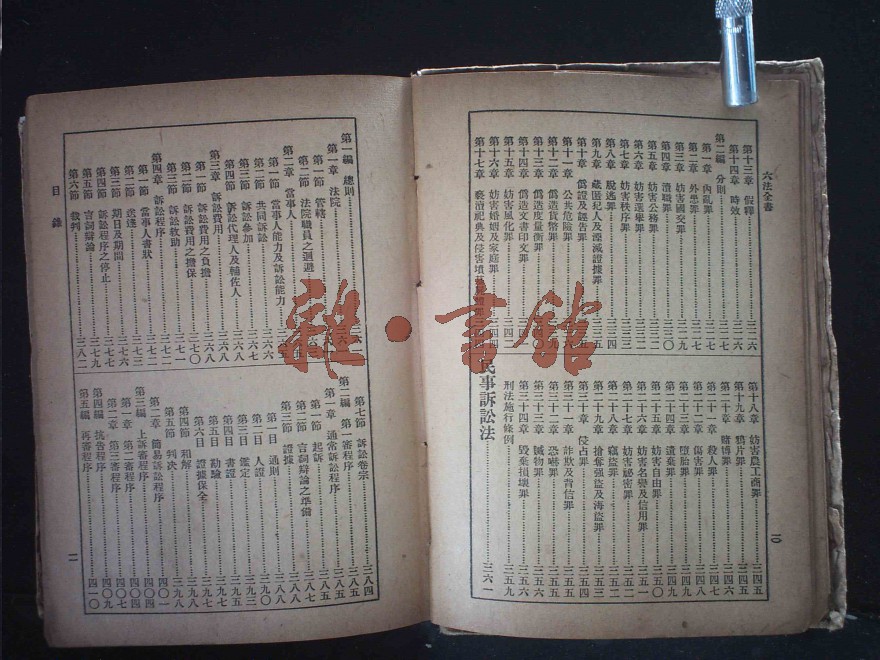 六法全書
第十三章 假釋 三二六
第十四章 時效 三二六
第二編 分則
第一章 內亂罪 三二七
第二章 外患罪
第三章 妨害國交罪 三二九
第四章 瀆職罪 三三〇
第五章 妨害公務罪
第六章 妨害選舉罪
第七章 妨害秩序罪
第八章 脫逃罪 三三四
第九章 藏匿犯人及湮滅證據罪 三三五
第十章 偽證及誣告罪
第十一章 公共危險罪
第十二章 偽造貨幣罪
第十三章 偽造度量衡罪
第十四章 偽造文書印文罪
第十五章 妨害風化罪
第十六章 妨害婚姻及家庭罪
第十七章 褻瀆祀典及侵害墳
第十八章 妨害農工商罪 三四五
第十九章 鴉片罪 三四五
第二十章 賭博罪
第二十一章 殺人罪 三四七
第二十二章 傷害罪 三四八
第二十三章 墮胎罪 三四九
第二十四章 遺棄罪 三四九
第二十五章 妨害自由罪 三五〇
第二十六章 妨害名譽及信用罪 三五一
第二十七章 妨害秘密罪 三五二
第二十八章 竊盜罪 三五二
第二十九章 搶奪強盜及海盜罪 三五三
第三十章 侵占罪 三五四
第三十一章 詐欺及背信罪 三五五
第三十二章 恐嚇罪 三五五
第三十三章 贓物罪 三五六
第三十四章 毀棄損壞罪 三五六
刑法施行條例 三五九
民事訴訟法 三六一
一〇
第一編 總則
第一章 法院
第一節 管轄
第二節 法院職員之迴避
第二章 當事人
第一節 當事人能力及訴訟能力
第二節 共同訴訟
第三節 訴訟參加 三六七
第四節 訴訟代理人及輔佐人 三六八
第三章 訴訟費用 三六八
第一節 訴訟費用之負擔 三六八
第二節 訴訟費用之擔保 三七〇
第三節 訴訟救助 三七一
第四章 訴訟程序 三七二
第一節 當事人書狀 三七二
第二節 送達 三七三
第三節 期日及期間 三七六
第四節 訴訟程序之停止 三七七
第五節 言詞辯論 三七九
第六節 裁判 三八二
第七節 訴訟卷宗 三八四
第二編 第一審程序 三八五
第一章 通常訴訟程序 三八五
第一節 起訴 三八五
第二節 言詞辯論之準備 三八七
第三節 證據 三八八
第一目 通則 三八八
第二目 人證 三九〇
第三目 鑑定 三九三
第四目 書證
第五目 勘驗 三九五
第六目 證據保全
第四節 和解
第五節 判決 三九八
第二章 簡易訴訟程序 四〇一
第三編 上訴審程序 四〇四
第一章 第二審程序 四〇四
第二章 第三審程序 四〇七
第四編 抗告程序 四〇九
第五編 再審程序 四一〇
目錄
一一
雜·書館